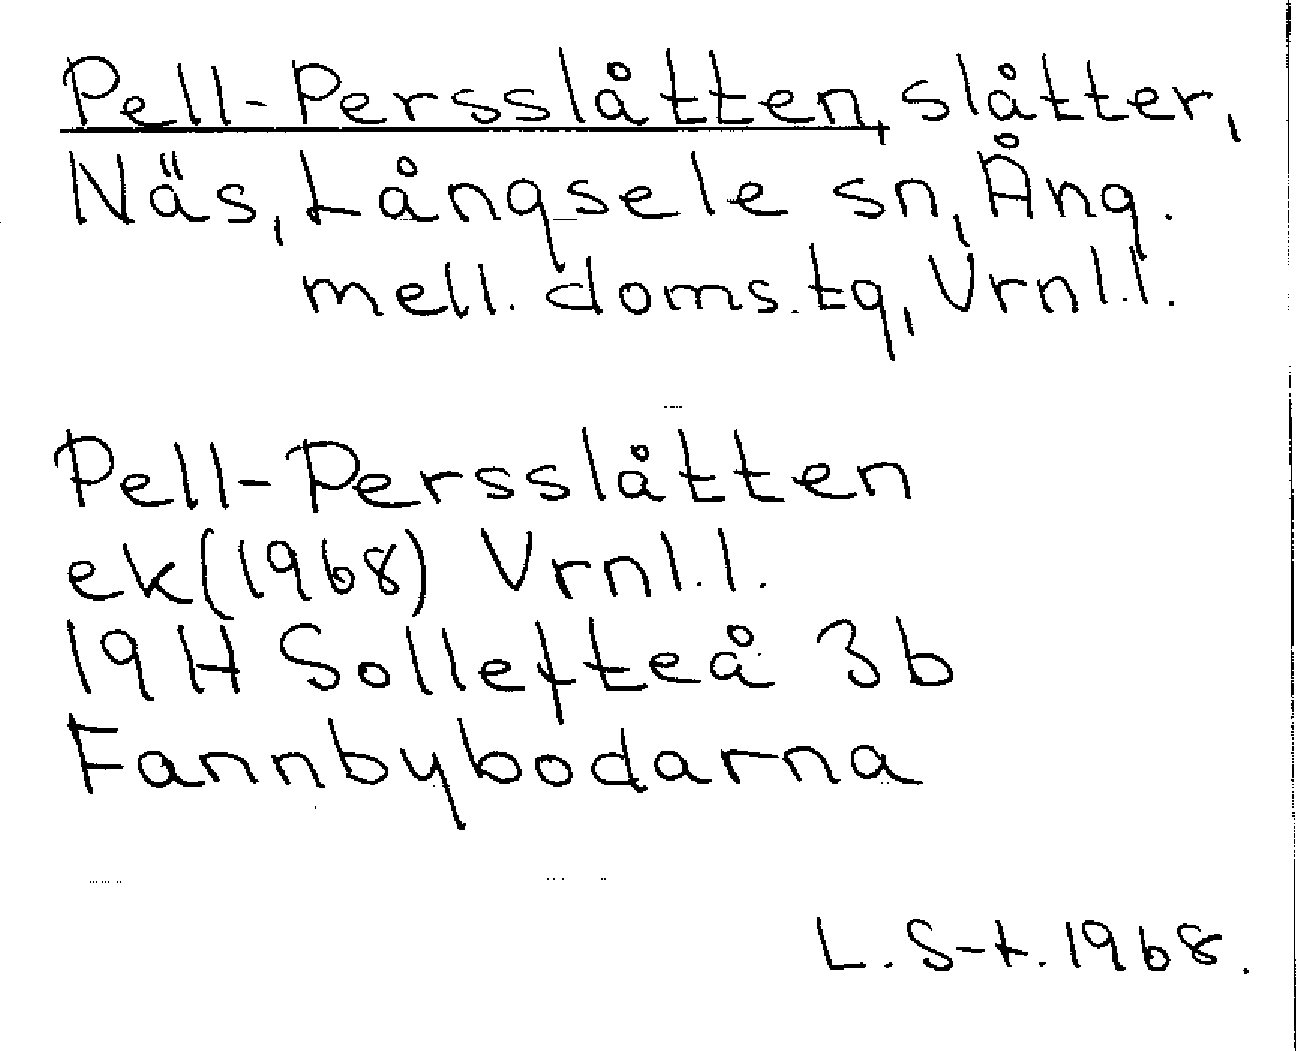 Pell-Persslåtten, slåtter,
Näs, Långsele sn, Ång.
mell. doms. tg, Vrnl.l.
Pell-Persslåtten
ek(1968) Vrnl.l.
19H Sollefteå 3b
Fannbybodarna
L. S-t. 1968.